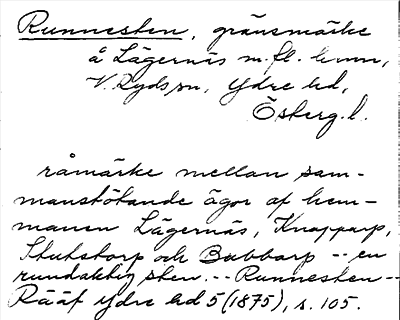 Runnesten, gränsmärke
å Lägernäs m.fl. hmn,
V. Ryds sn, Ydre hd,
Österg.l.
råmärke mellan sam-
manstötande ägor af hem-
manen Lägernäs, Knapparp,
Stutstorp och Bubbarp -- en
rundaktig sten. -- Runnesten --
Rääf Ydre hd 5 (1875), s. 105.